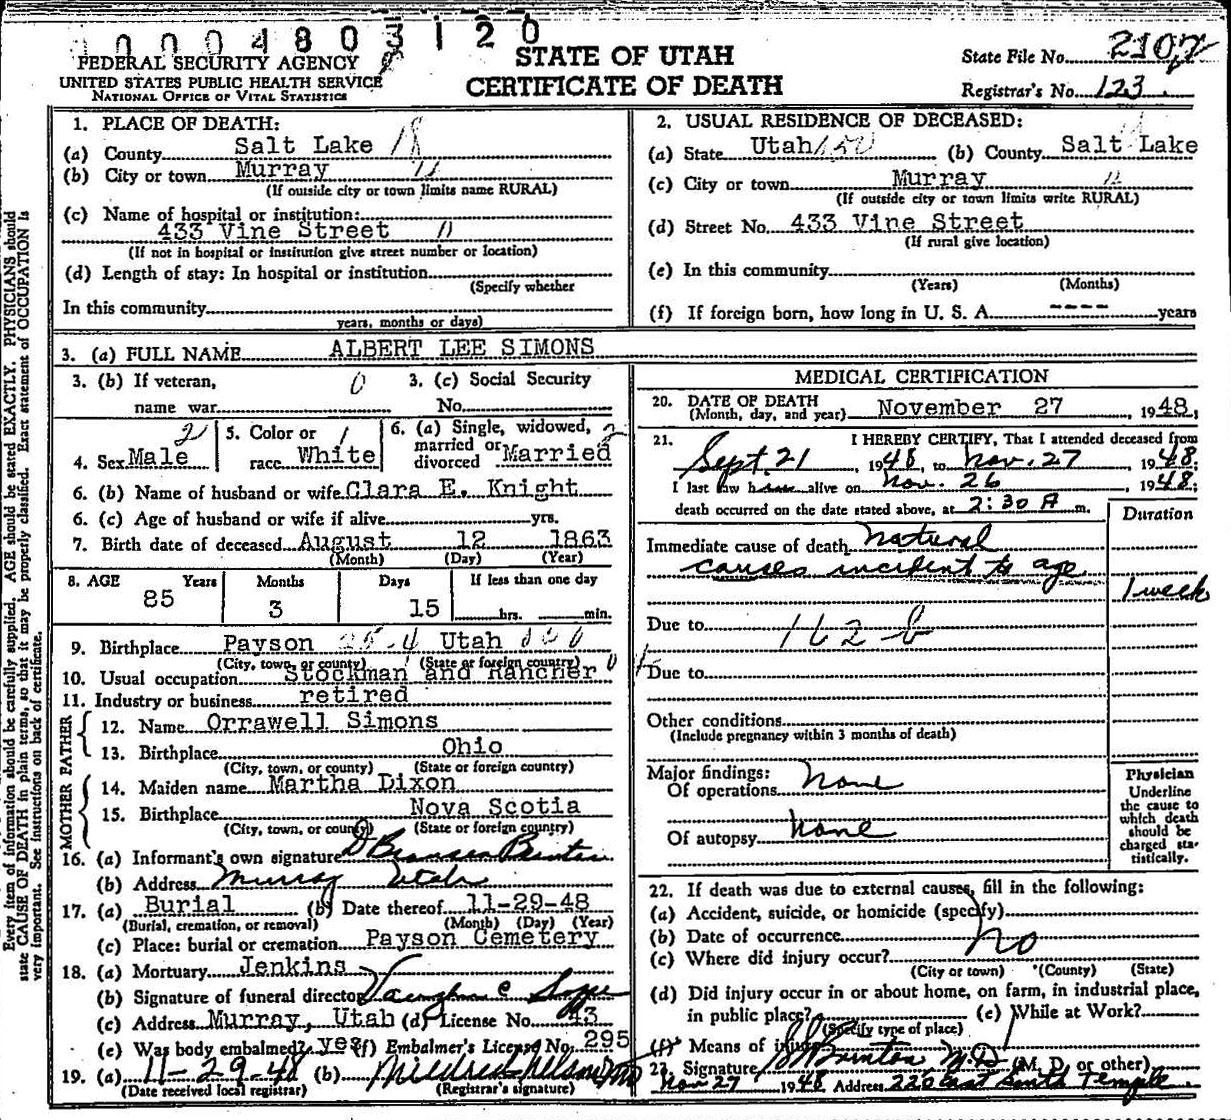 0000480 3120
FEDERAL SECURITY AGENCY
UNITED STATES PUBLIC HEALTH SERVICE
NATIONAL OFFICE OF VITAL STATISTICS
STATE OF UTAH
CERTIFICATE OF DEATH
State File No.
Registrar's No. 123
1. PLACE OF DEATH:
(a) County Salt Lake 18
(b) City or town Murray
(If outside city or town limits name RURAL)
(c) Name of hospital or institution:
433 Vine Street
(If not in hospital or institution give street number or location)
(d) Length of stay: In hospital or institution
(Specify whether
In this community
years, months or days)
2. USUAL RESIDENCE OF DECEASED:
(a) State Utah 150 (b) County Salt Lake
(c) City or town Murray
(If outside city or town limits write RURAL)
(d) Street No. 433 Vine Street
(If rural give location)
(e) In this community
(Years) (Months)
(f) If foreign born, how long in U. S. A. ---- years
3. (a) FULL NAME ALBERT LEE SIMONS
3. (b) If veteran, 0 3. (c) Social Security
name war No.
4. Sex Male 2 5. Color or race White 1 6. (a) Single, widowed, married or divorced Married 2
6. (b) Name of husband or wife Clara E. Knight
6. (c) Age of husband or wife if alive yrs.
7. Birth date of deceased August 12 1863
(Month) (Day) (Year)
8. AGE Years Months Days If less than one day
85 3 15 hrs. min.
9. Birthplace Payson 25-4 Utah
(City, town, or county) (State or foreign country)
10. Usual occupation Stockman and Rancher
11. Industry or business retired
FATHER
12. Name Orrawell Simons
13. Birthplace Ohio
(City, town, or county) (State or foreign country)
MOTHER
14. Maiden name Martha Dixon
15. Birthplace Nova Scotia
(City, town, or county) (State or foreign country)
16. (a) Informant's own signature
(b) Address Murray Utah
17. (a) Burial (b) Date thereof 11-29-48
(Burial, cremation, or removal) (Month) (Day) (Year)
(c) Place: burial or cremation Payson Cemetery
18. (a) Mortuary Jenkins
(b) Signature of funeral director Vaughn C
(c) Address Murray, Utah (d) License No. 43
(e) Was body embalmed? yes (f) Embalmer's License No. 295
19. (a) 11-29-48 (b) Mildred Nelson
(Date received local registrar) (Registrar's signature)
MEDICAL CERTIFICATION
20. DATE OF DEATH
(Month, day, and year) November 27, 1948;
21. I HEREBY CERTIFY, That I attended deceased from
Sept. 21, 1948, to Nov. 27, 1948;
I last saw him alive on Nov. 26, 1948;
death occurred on the date stated above, at 2:30 A m.
Duration
Immediate cause of death Natural
causes incident to age
1 week
Due to 162 b
Due to
Other conditions
(Include pregnancy within 3 months of death)
Major findings:
Of operations None
Of autopsy None
Physician
Underline
the cause to
which death
should be
charged sta-
tistically.
22. If death was due to external causes, fill in the following:
(a) Accident, suicide, or homicide (specify)
(b) Date of occurrence No
(c) Where did injury occur?
(City or town) (County) (State)
(d) Did injury occur in or about home, on farm, in industrial place,
in public place? (e) While at Work?
(Specify type of place)
(f) Means of injury
23. Signature Brinton M.D. (M. D. or other)
Nov 27 1948 Address 226 East South Temple
Every item of information should be carefully supplied. AGE should be stated EXACTLY. PHYSICIANS should
state CAUSE OF DEATH in plain terms, so that it may be properly classified. Exact statement of OCCUPATION is
very important. See instructions on back of certificate.